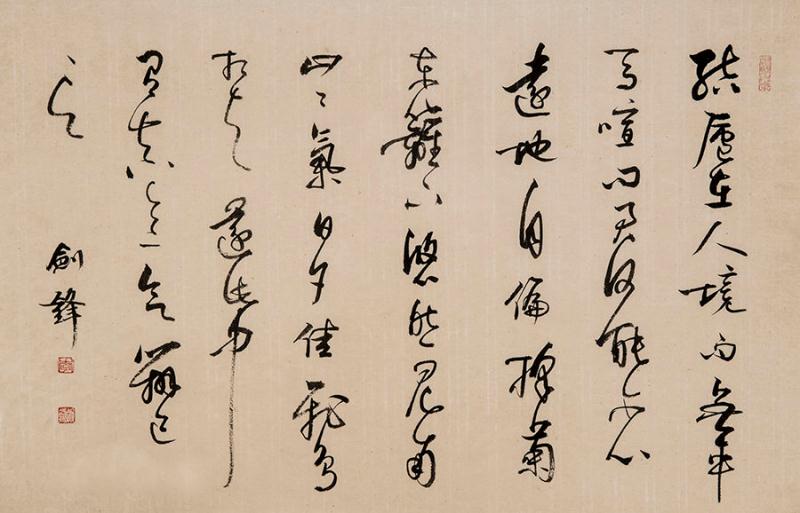 結廬在人境而無車
馬喧問君何能尔心
遠地自偏採菊
東籬下悠然見南
山〻氣日夕佳飛鳥
相与還此中
有真意欲辨已
忘言
劍鋒